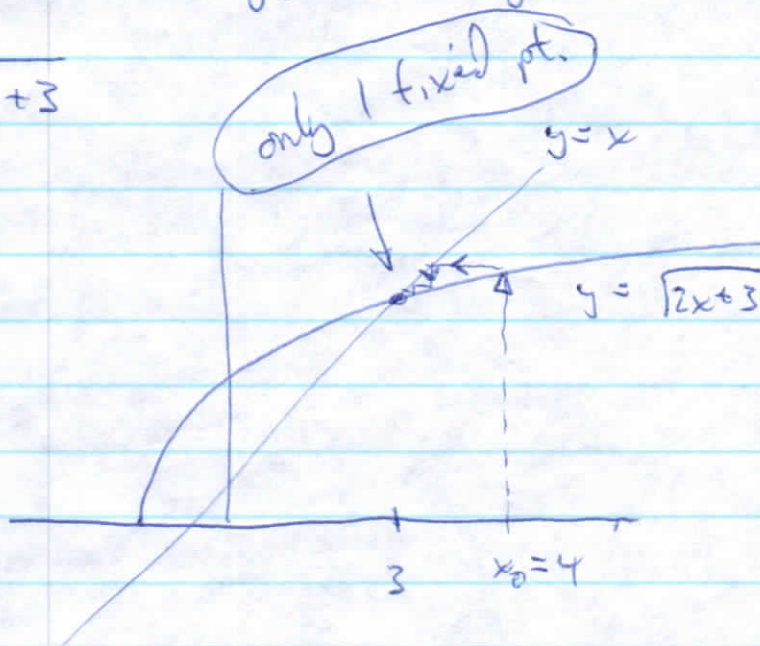 +3
only 1 fixed pt.
y=x
y = √2x+3
3
x₀=4